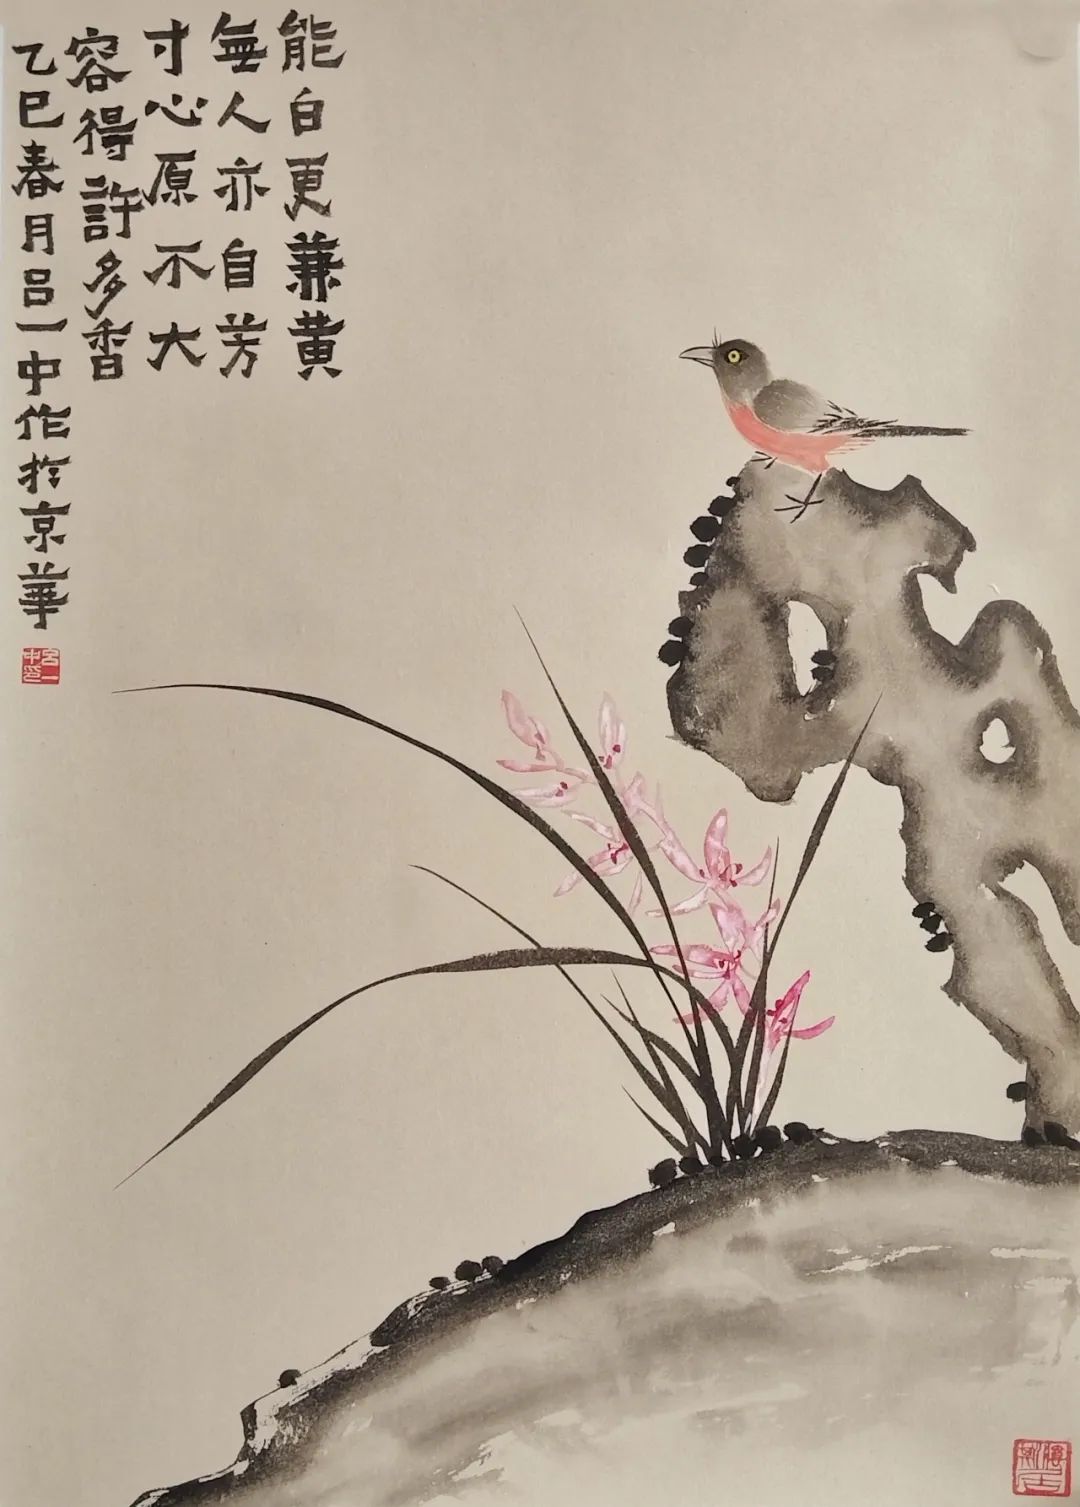 能白更兼黄
無人亦自芳
寸心原不大
容得許多香
乙巳春月吕一中作於京華
吕一中印